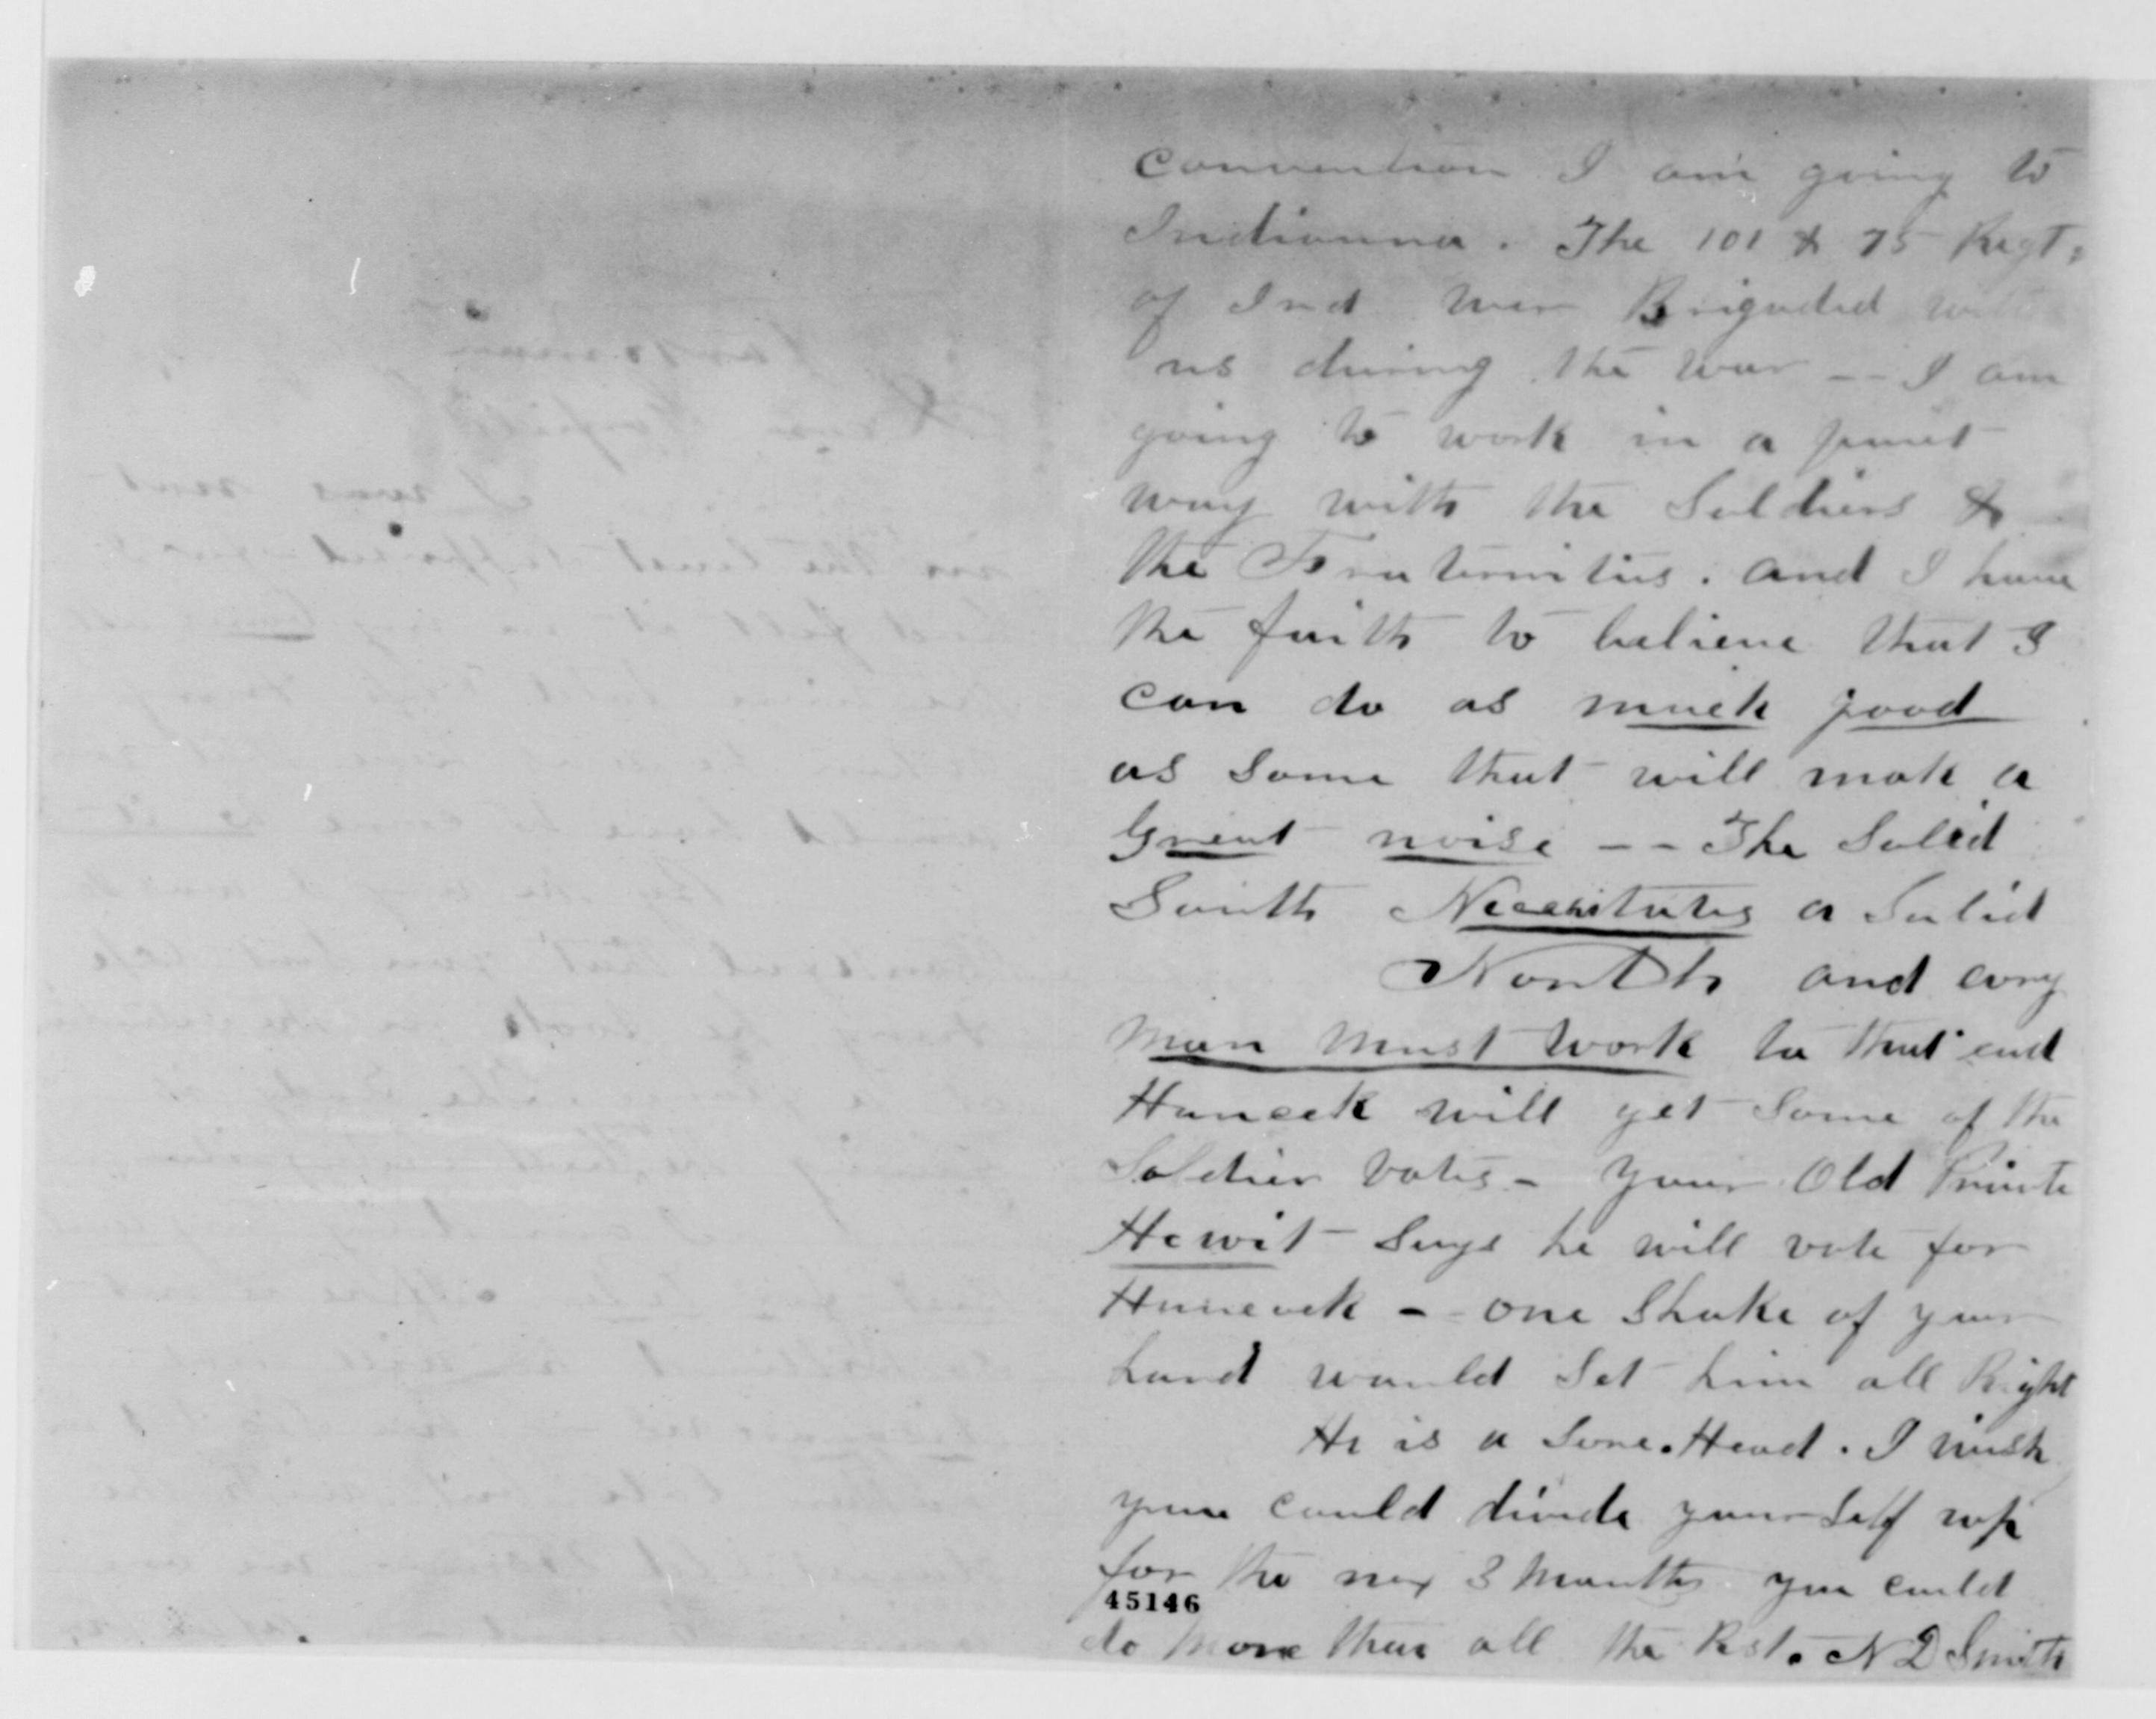 Convention I am going to
Indianna. The 101 & 75 Regt.
of Ind wer Brigaded with
us during the war -- I am
going to work in a
way with the Soldiers &
the Fraternities. and I have
the faith to believe that I
can do as much good
as some that will make a
Great noise -- The Solid
South Necessitates a Solid
North and evry
man must work to that end
Hancock will get some of the
Soldier votes - your Old Private
Hewit Says he will vote for
Hancock - one Shake of your
hand would Set him all Right
He is a Sore. Head. I wish
you could divide your Self up
for the nex 3 months you could
45146
do more than all the Rest. N D Smith